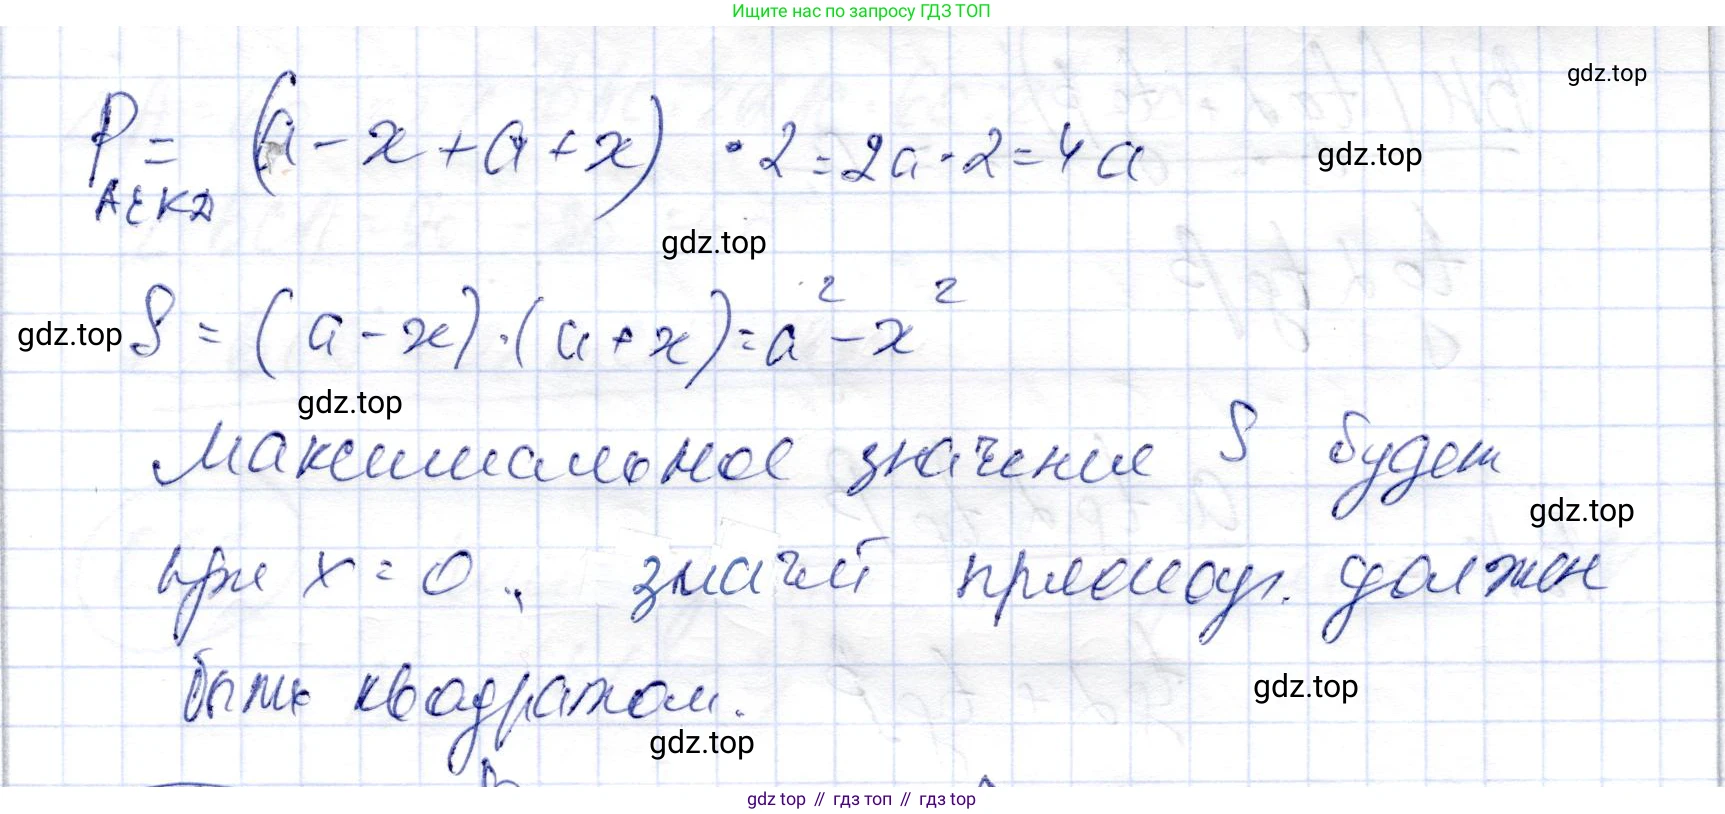 Ищите нас по запросу ГДЗ ТОП
gdz.top
P = (a - x + a + x) · 2 = 2a · 2 = 4a
AEKD
gdz.top
gdz.top
gdz.top
S = (a - x) · (a + x) = a² - x²
gdz.top
Максимальное значение S будет
gdz.top
при x = 0, значит прямоуг. должен
быть квадратом.
gdz.top
gdz.top
gdz top // гдз топ // гдз top